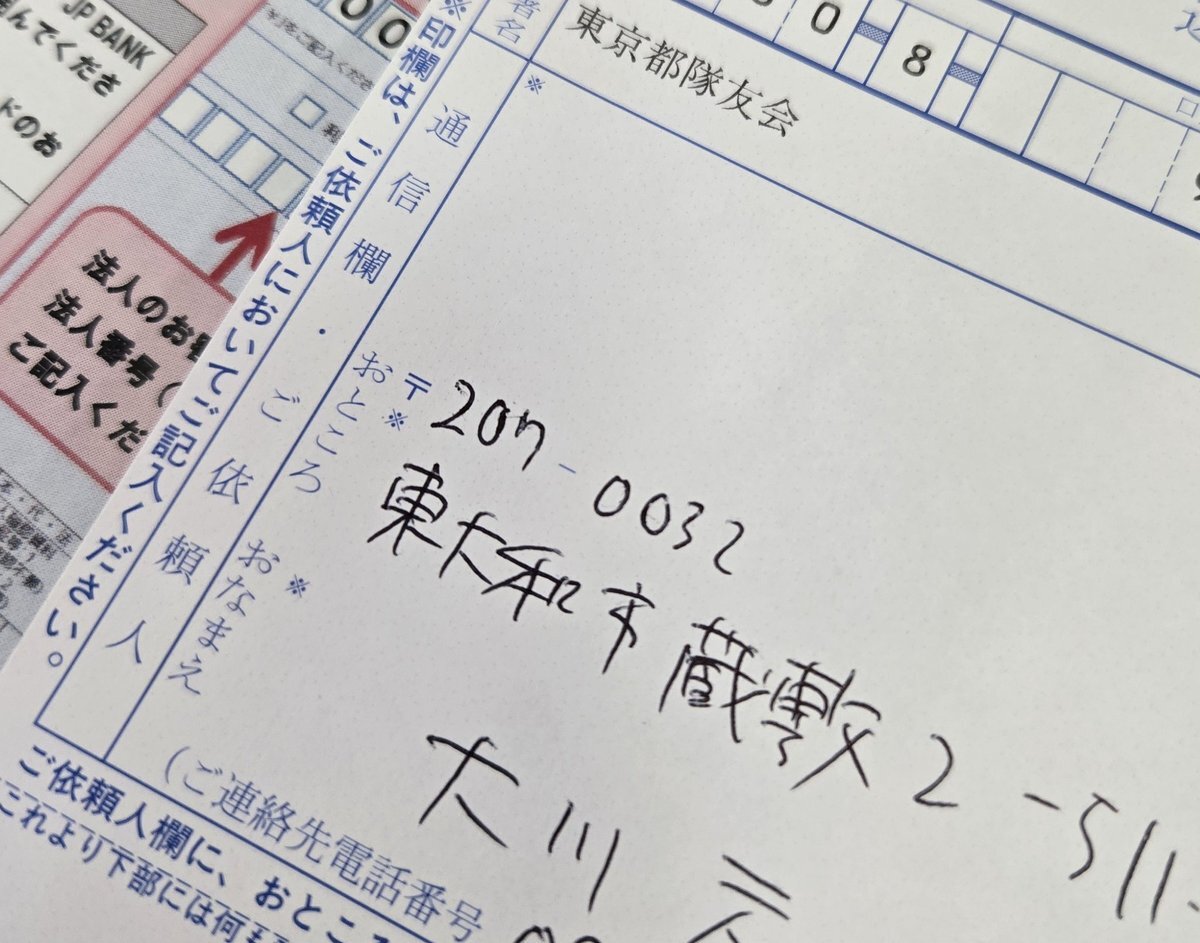 JP BANK
んでくださ
ドのお
法人のお
法人番号(
ご記入くだ
者名
東京都隊友会
0-8-
※印欄は、ご依頼人においてご記入ください。
通信欄・ご依頼人
※
おところ※
おなまえ※
〒207-0032
東大和市蔵敷2-511
大川
(ご連絡先電話番号
ご依頼人欄に、おところ
これより下部には何も